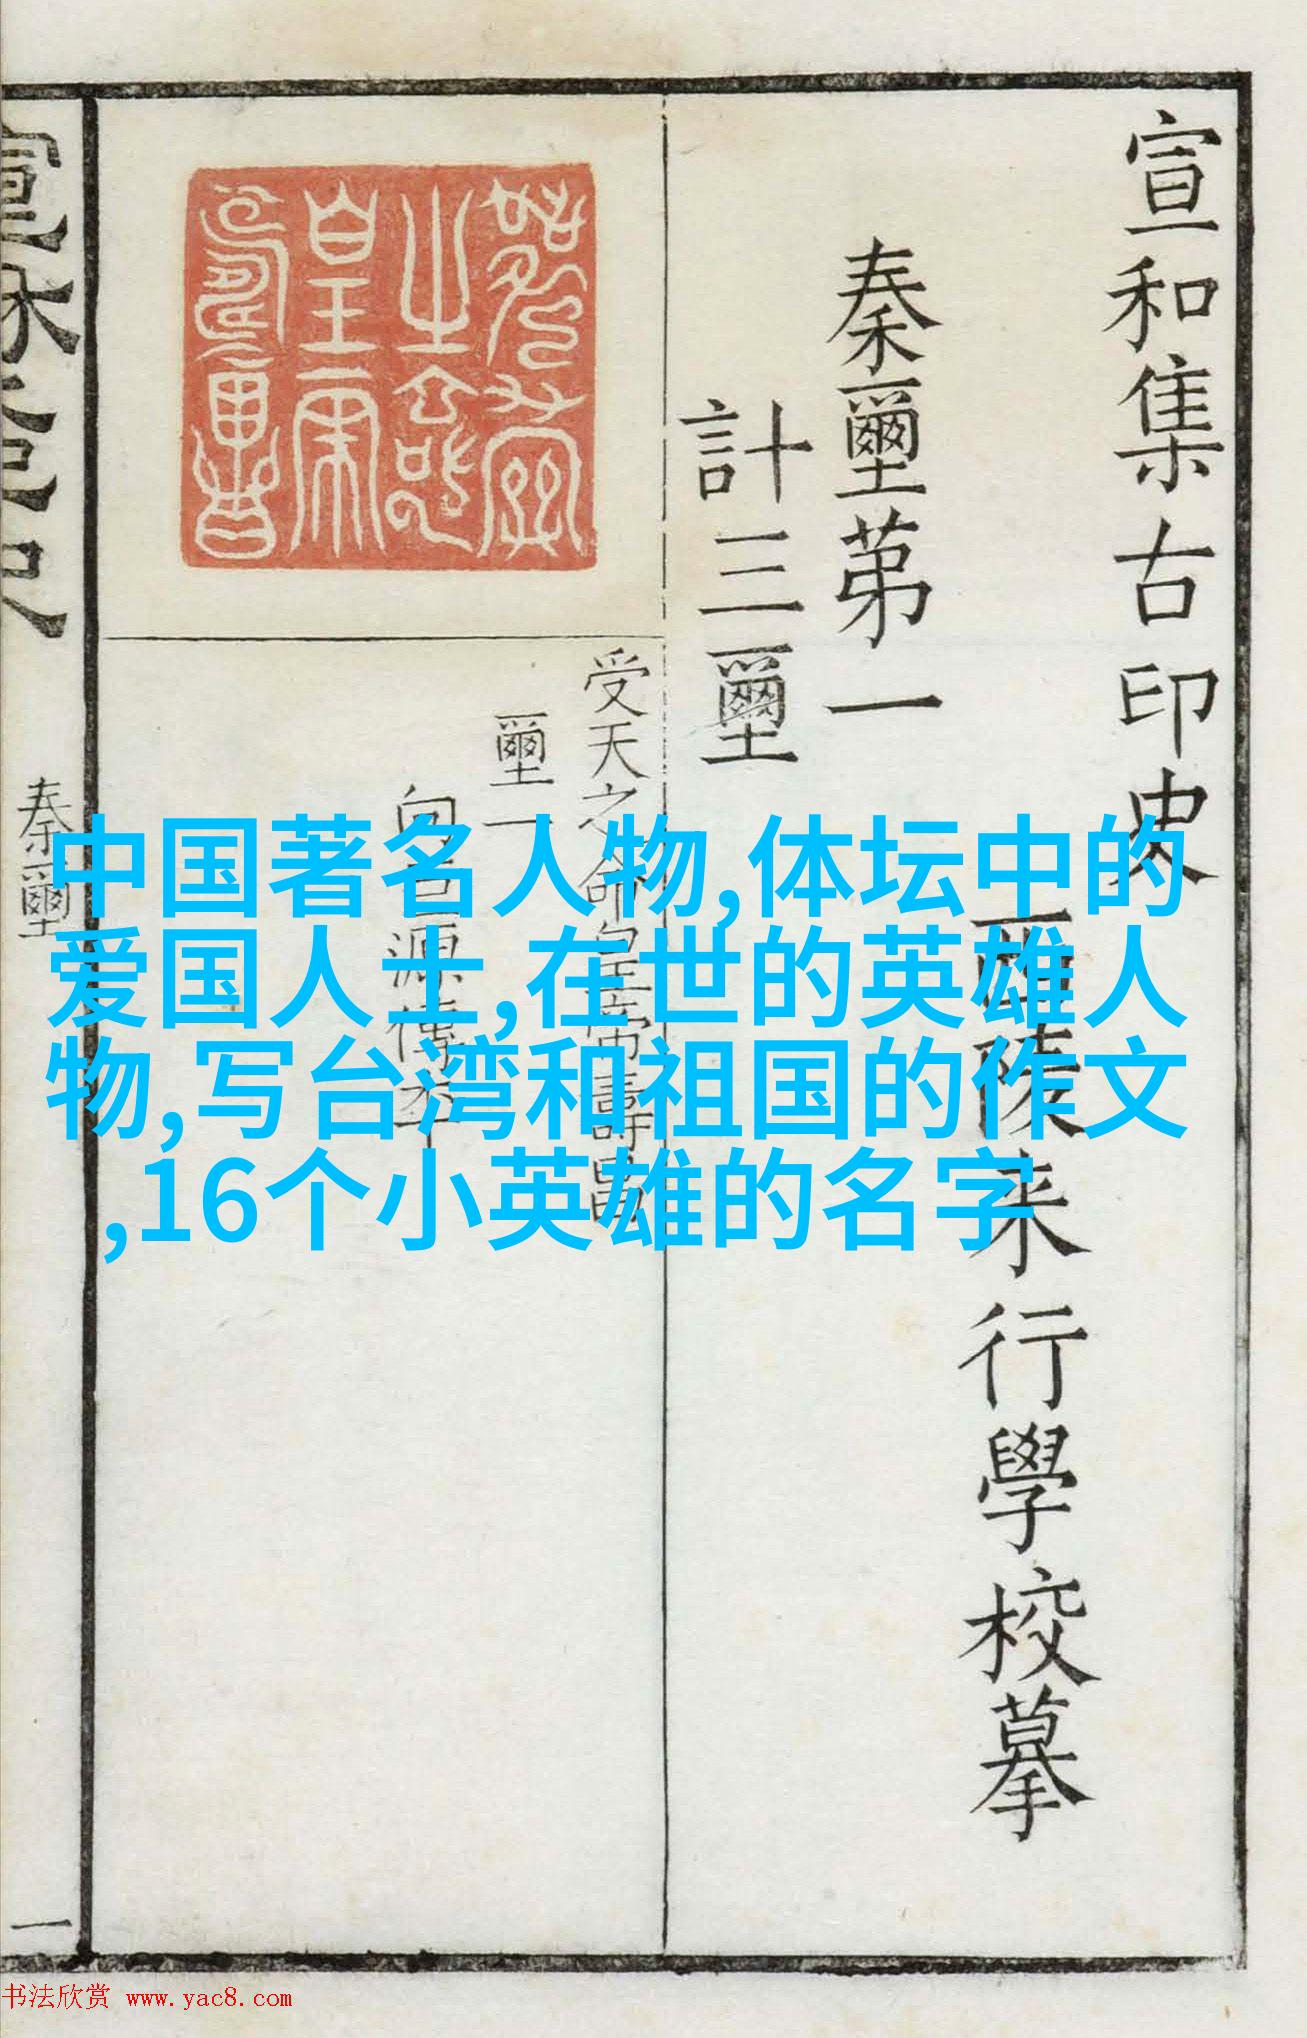 宣和集古印史
西陵来行學校摹
秦璽苐一
計三璽
受天之命皇帝壽昌
璽一
向巨源傳本
秦璽
一
中国著名人物,体坛中的
爱国人士,在世的英雄人
物,写台湾和祖国的作文
,16个小英雄的名字
书法欣赏 www.yac8.com